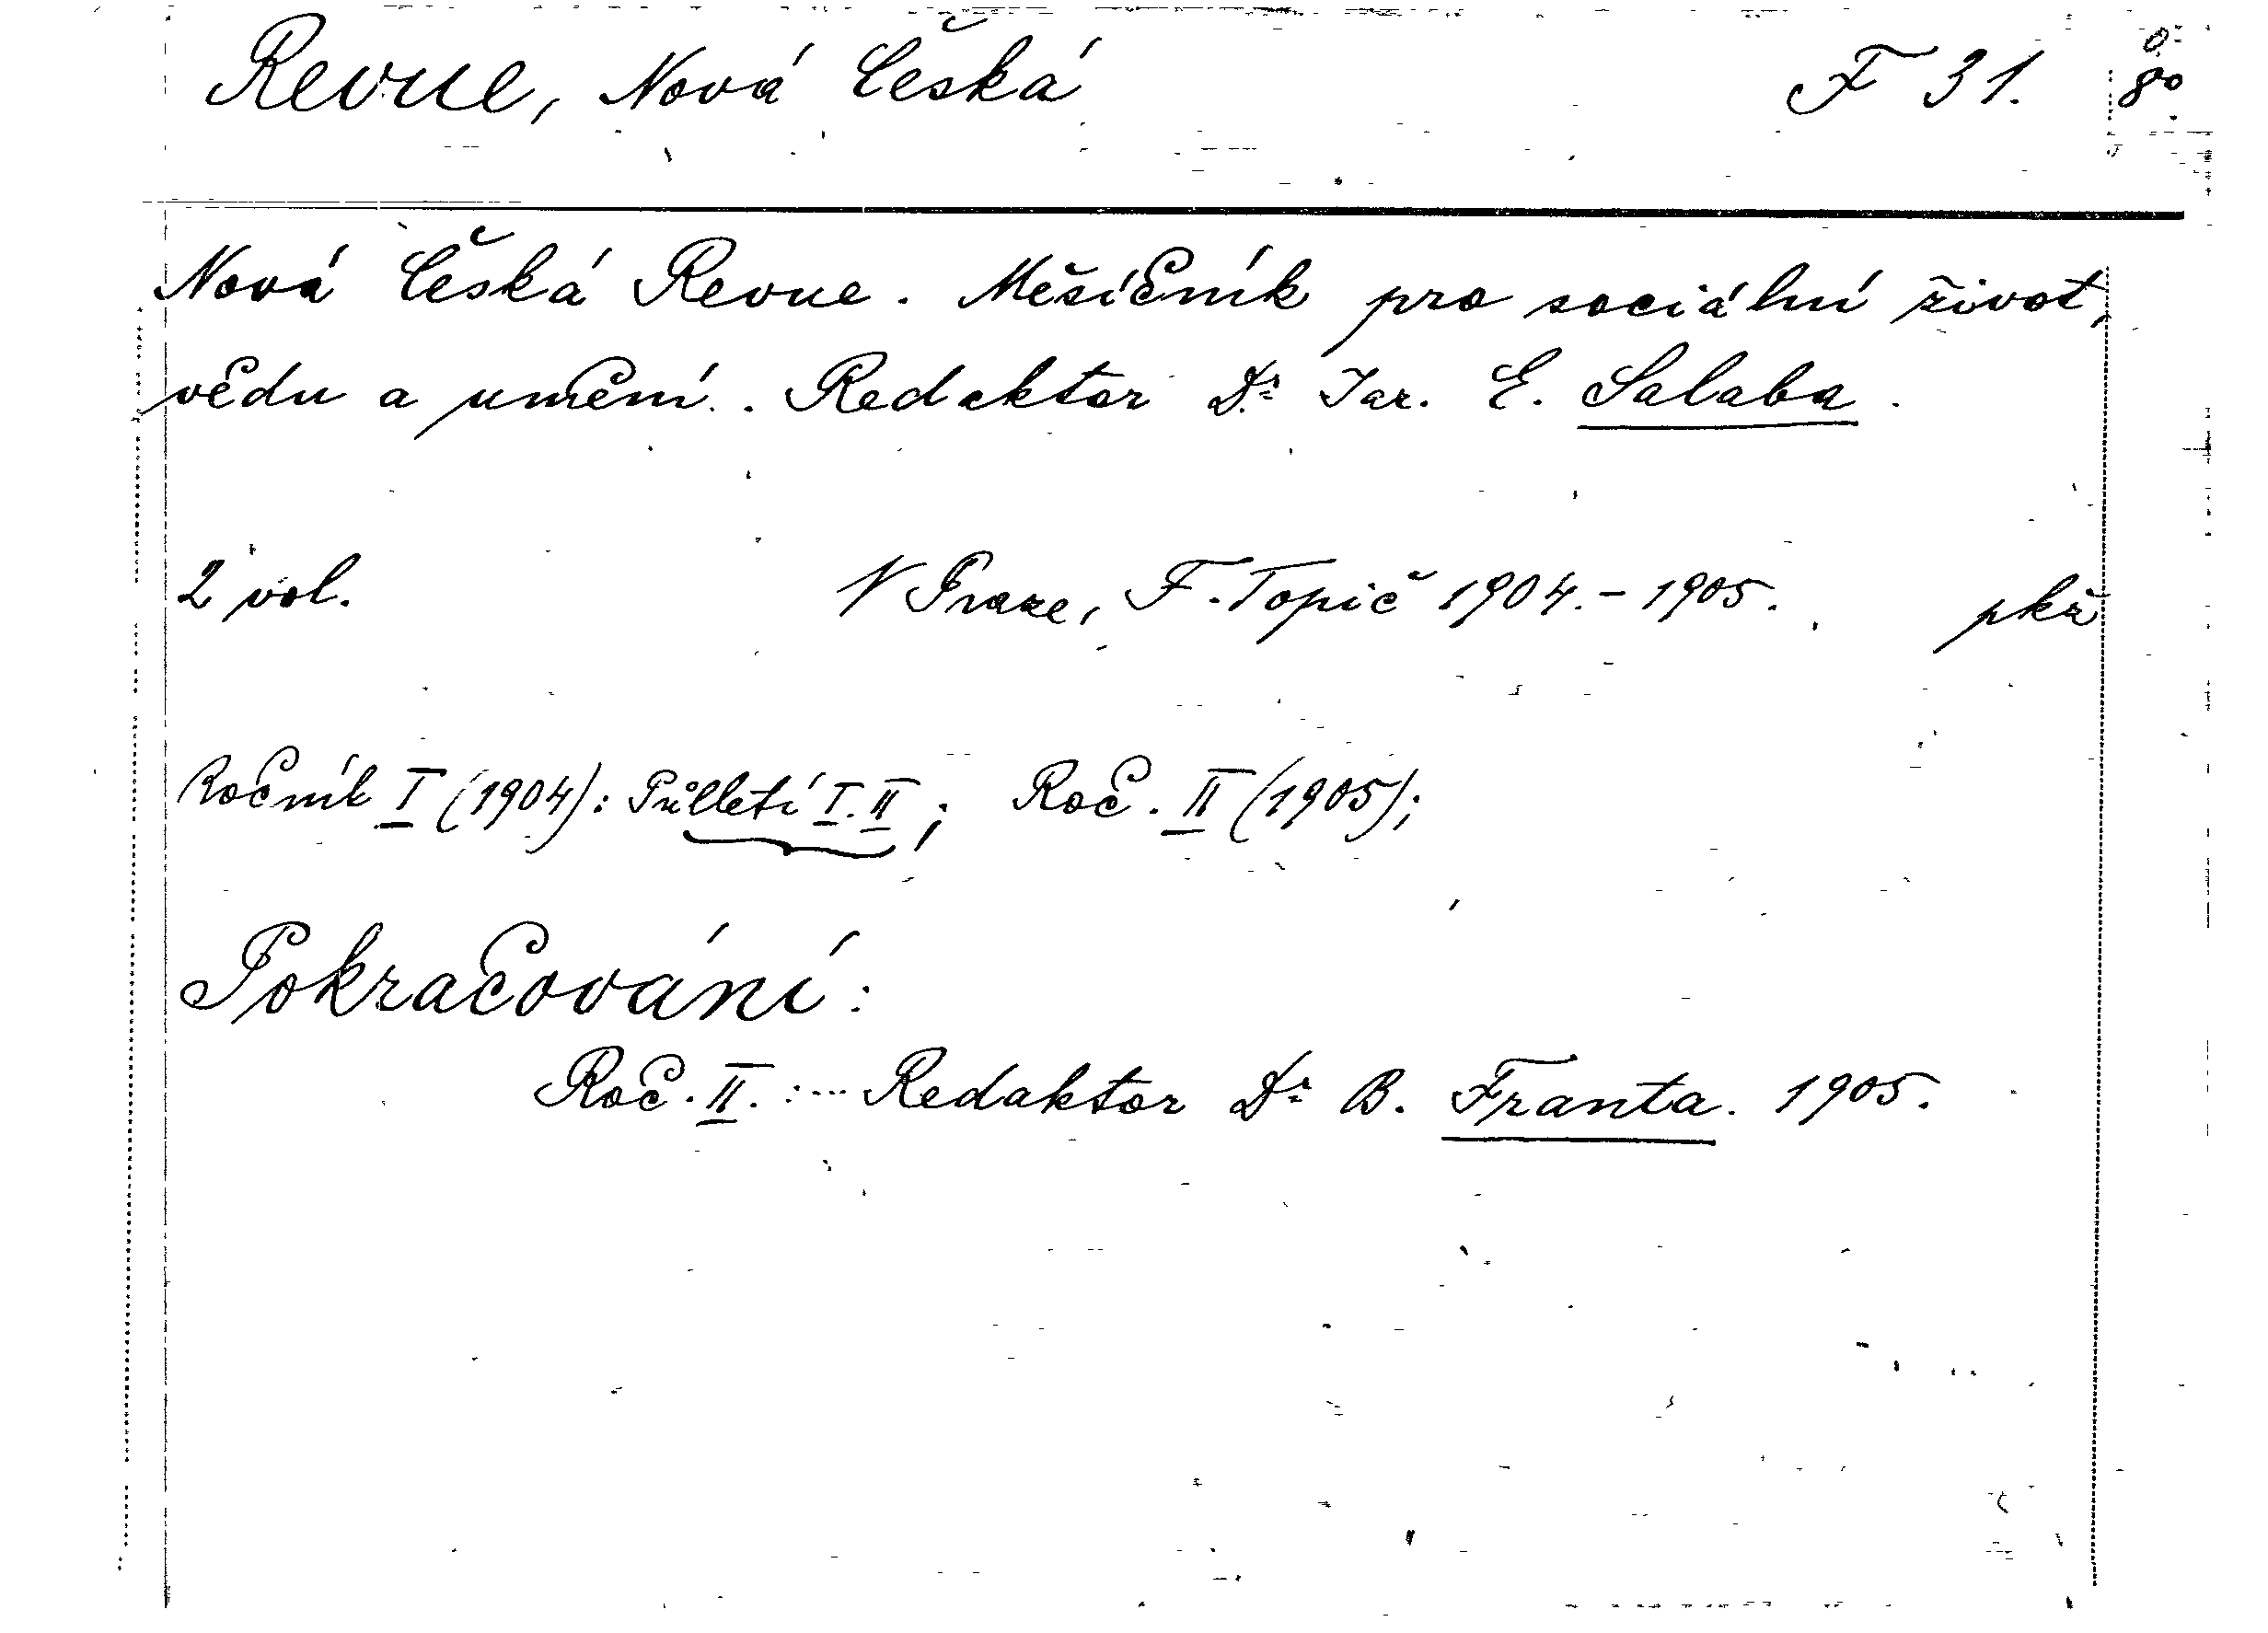 Revue, Nová Česká F 31. 8°
Nová Česká Revue. Měsíčník pro sociální život,
vědu a umění. Redaktor Dr Jar. E. Salaba.
2 vol. V Praze, F. Topič 1904.-1905. pkř
Ročník I (1904): Půlletí I. II; Roč. II (1905);
Pokračování:
Roč. II. :... Redaktor Dr B. Franta. 1905.